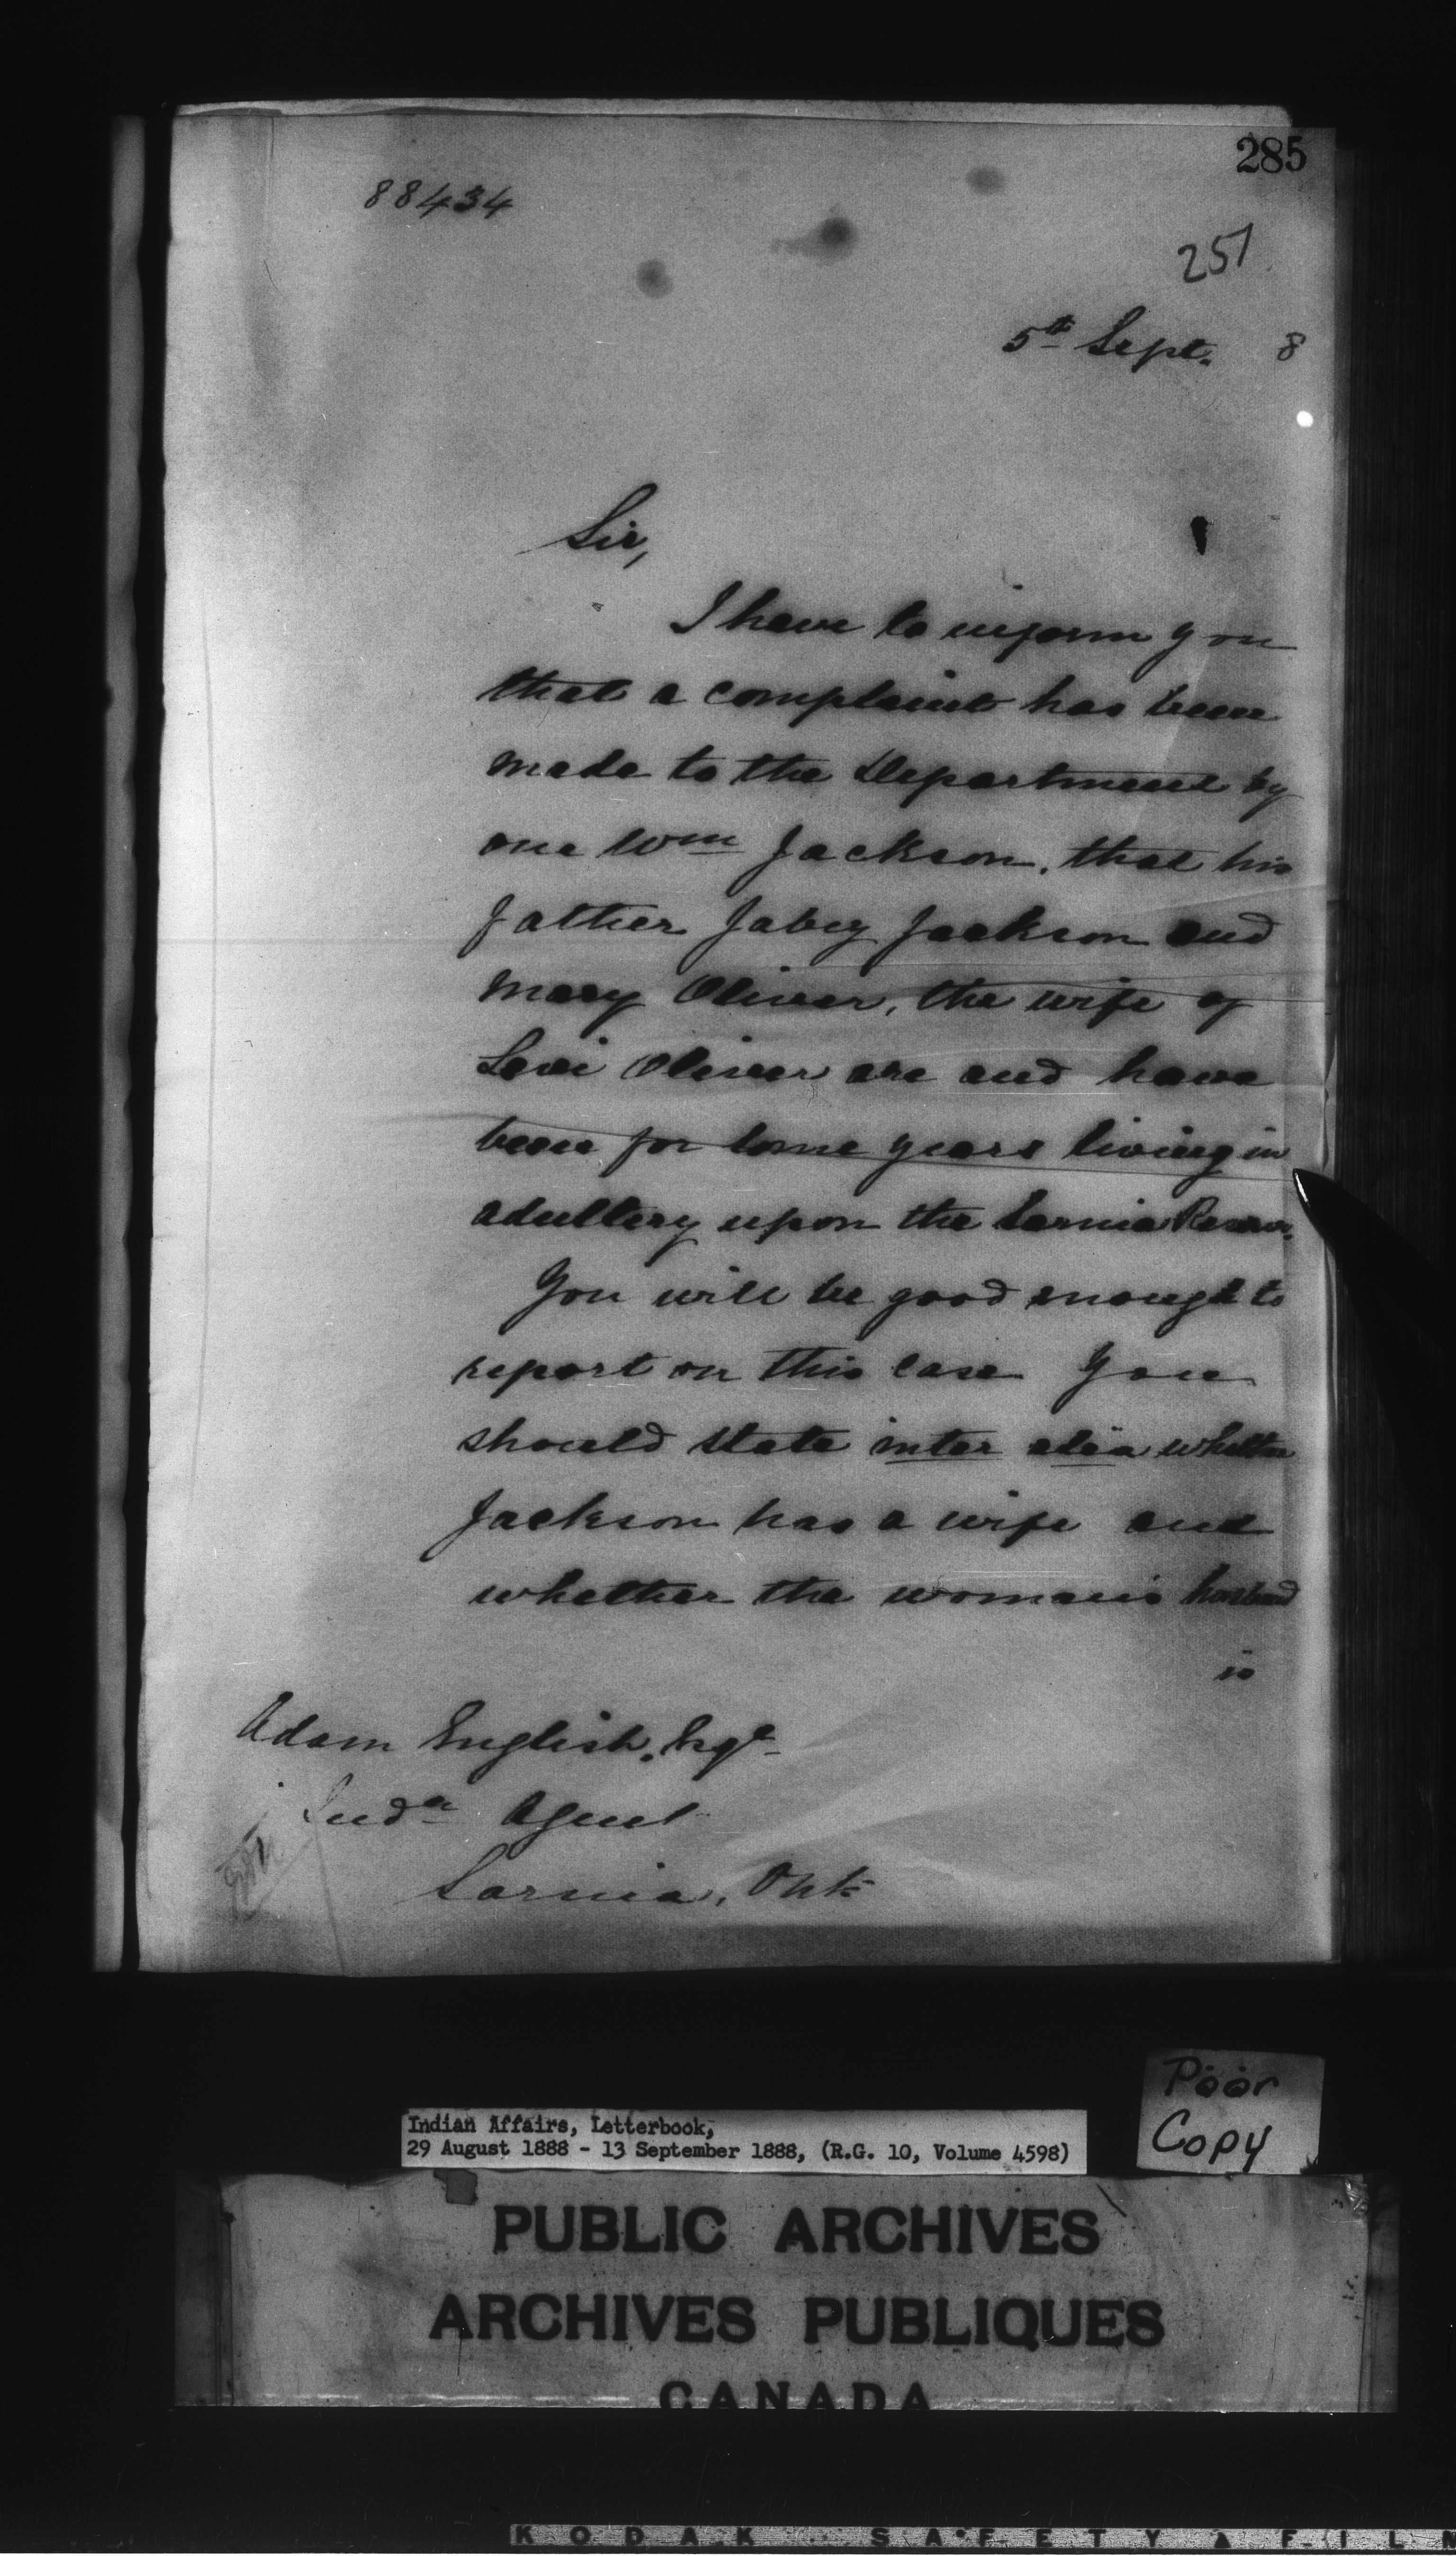 285
88434
257
5th Sept. 8
Sir,
I have to inform you
that a complaint has been
made to the Department by
one Wm Jackson, that his
father Jabez Jackson and
Mary Oliver, the wife of
Levi Oliver are and have
been for some years living in
adultery upon the Sarnia Reserve.
You will be good enough to
report on this case You
should state inter alia whether
Jackson has a wife and
whether the woman's husband
is
Adam English, Esqe
Indn Agent
Sarnia, Ont.
Poor
Copy
Indian Affairs, Letterbook,
29 August 1888 - 13 September 1888, (R.G. 10, Volume 4598)
PUBLIC ARCHIVES
ARCHIVES PUBLIQUES
CANADA
KODAK SAFETY FILM